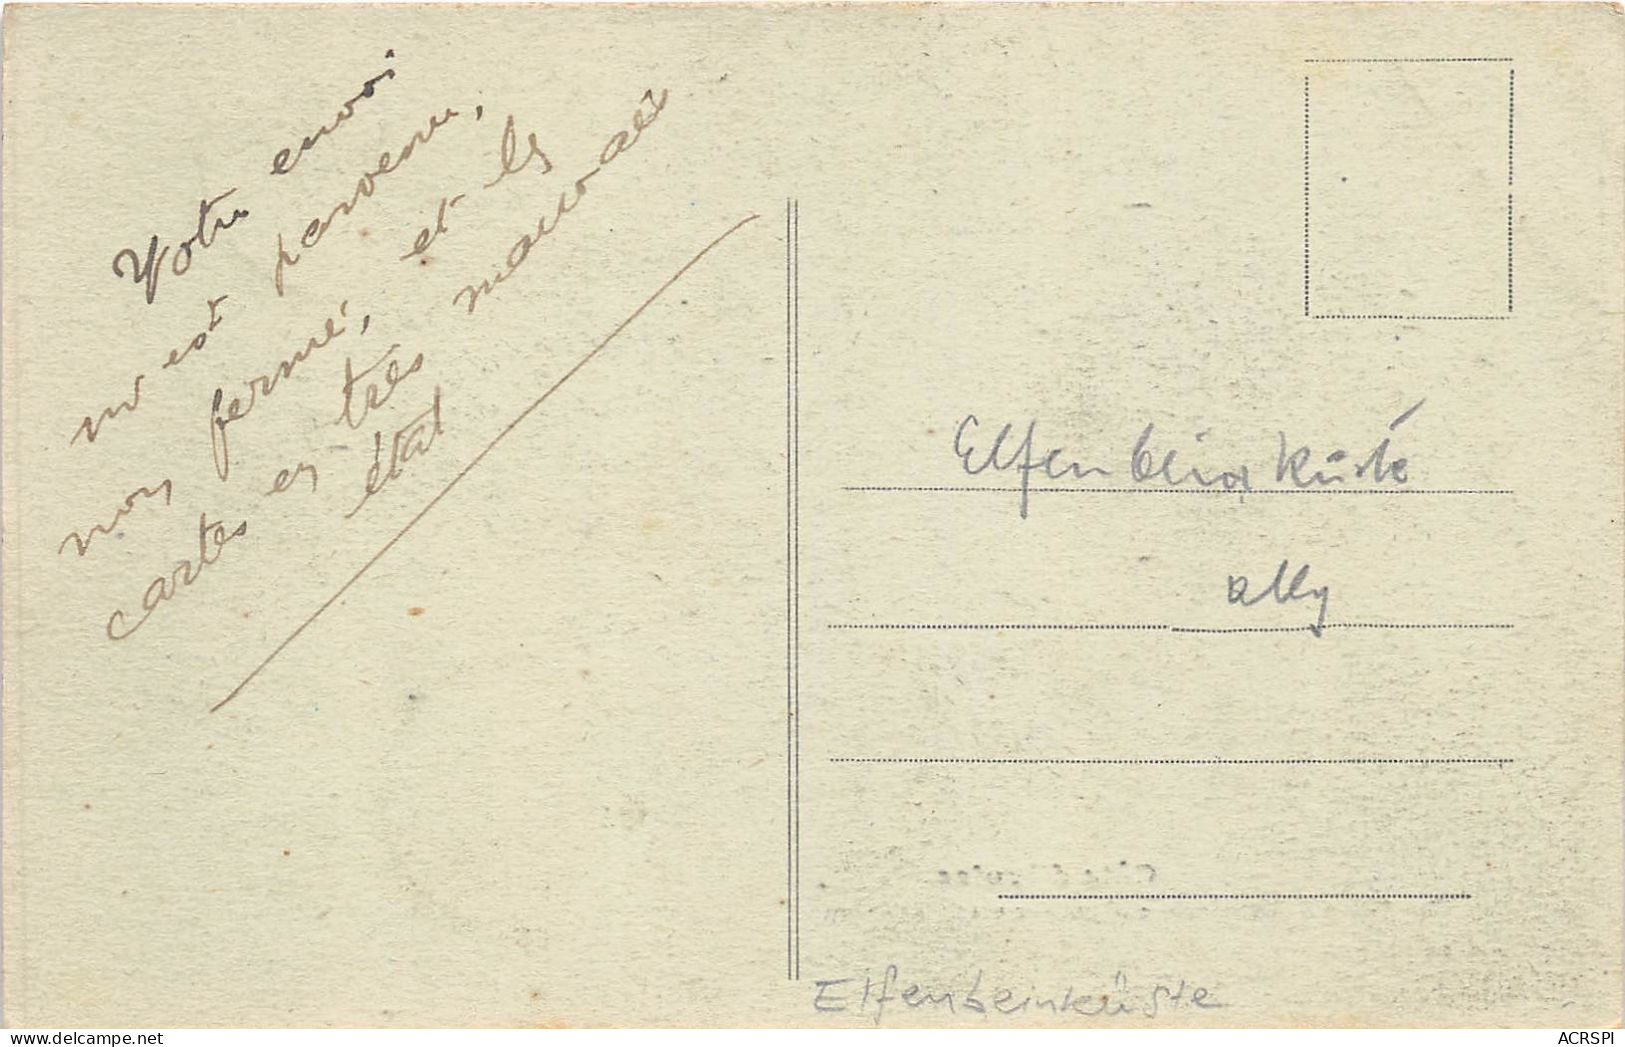 Votre envoi
m'est parvenu,
non fermé, et les
cartes en très mauvais
état
Elfenbeinküste
Elfenbeinküste
delcampe.net
ACRSPI